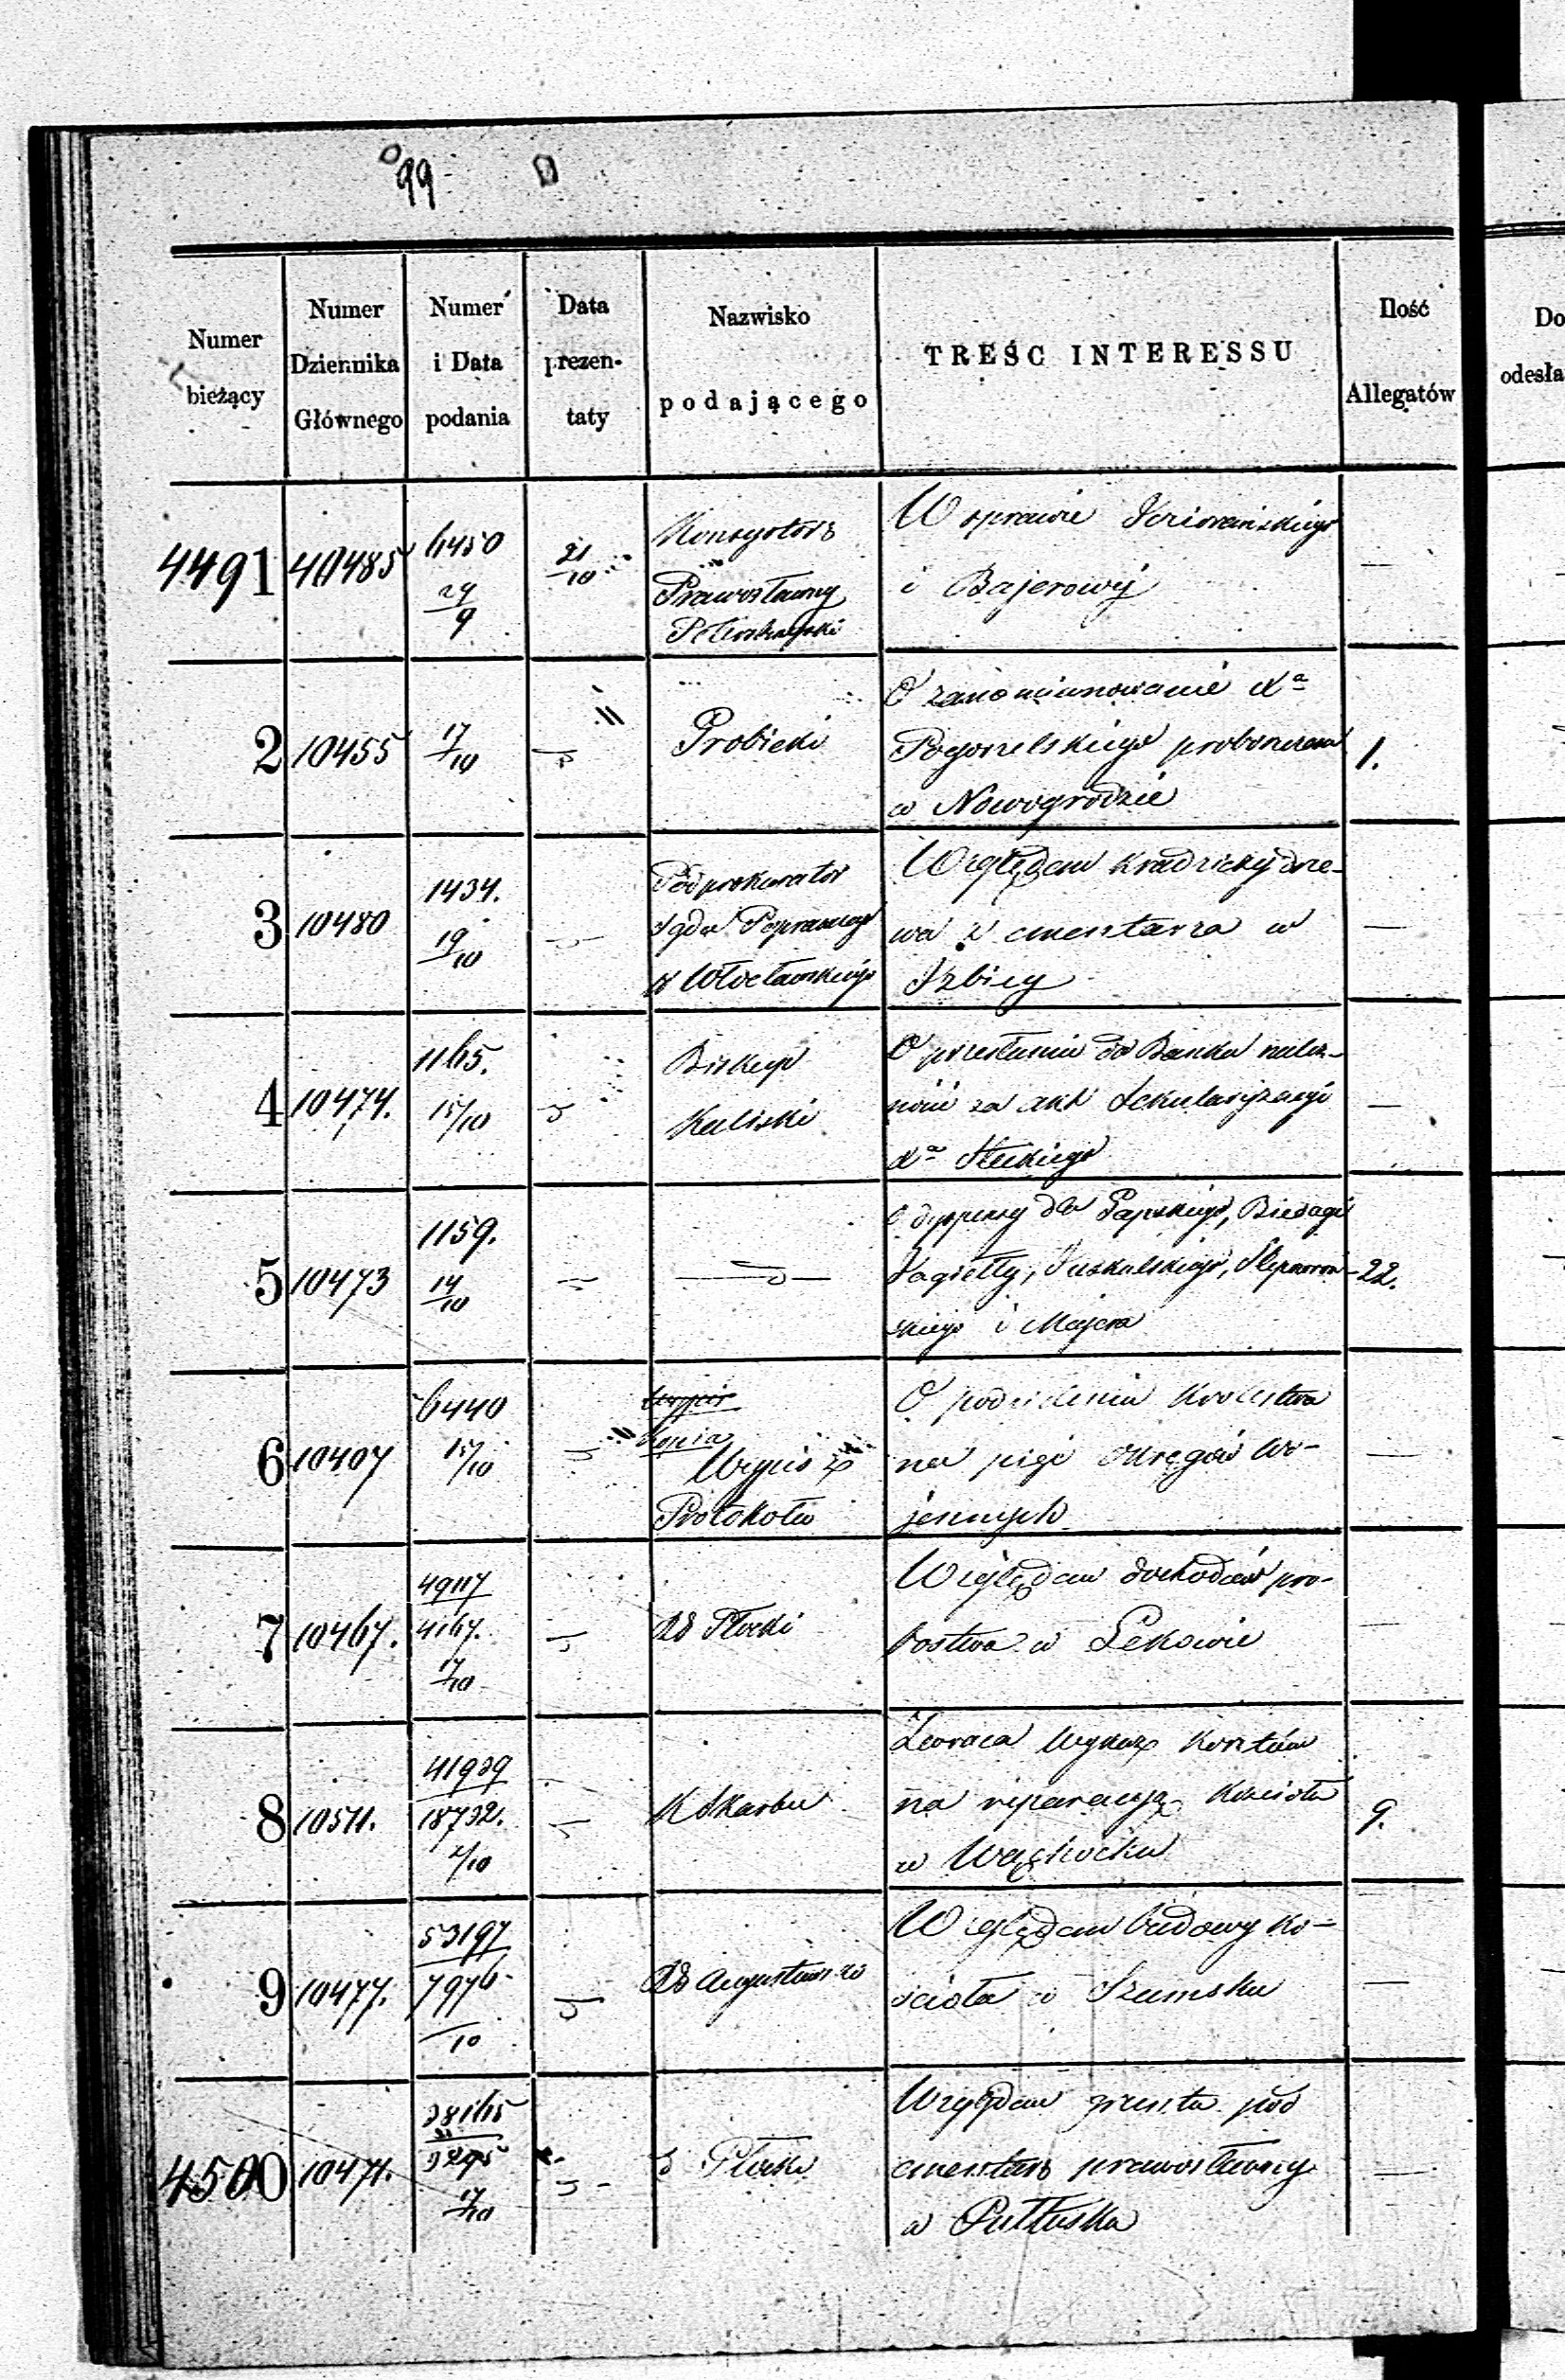 99
Numer bieżący
Numer Dziennika Głównego
Numer i Data podania
Data prezen- taty
Nazwisko podającego
TREŚC INTERESSU
Ilość Allegatów
Do
odesła
4491 10485 6450 29/9 21/10
Konsystorz
Prawosławny
W sprawie
i Bajerowéj
—
2 10455 17/10
Probicki
O zanominowanie Xa
Pogorzelskiego proboszczem
w Nowogrodzie
1.
3 10480 1434. 19/10
Podprokurator
Sądu Poprawczego
Względem kradzieży drze-
wa z cmentarza w
Izbicy
—
4 10474. 1165. 15/10
Biskup
Kaliski
O przesłaniu do Banku należ-
ność za akt Sekularyzacyi
Xa
—
5 10473 1159. 14/10
O dyspensy dla
Jagiełły,
skiego i Majera
22.
6 10407 6440 15/10
Kopia
Wypis z
Protokołu
O podzieleniu Królestwa
na pięć Okręgów Wo-
jennych
—
7 10467. 4167. 17/10
Płocki
Względem dochodów pro-
bostwa w Lekowie
—
8 10511. 41939 18732. 2/10
K Skarbu
Zwraca wykaz kosztów
na reparacyą Kościoła
w Wąchocku
9.
9 10477. 53197 7976 /10
Względem budowy ko-
ścioła w Szumsku
—
4500 10471. 38165 17/10
Płocki
Względem gruntu pod
cmentarz prawosławny
w Pułtusku
—